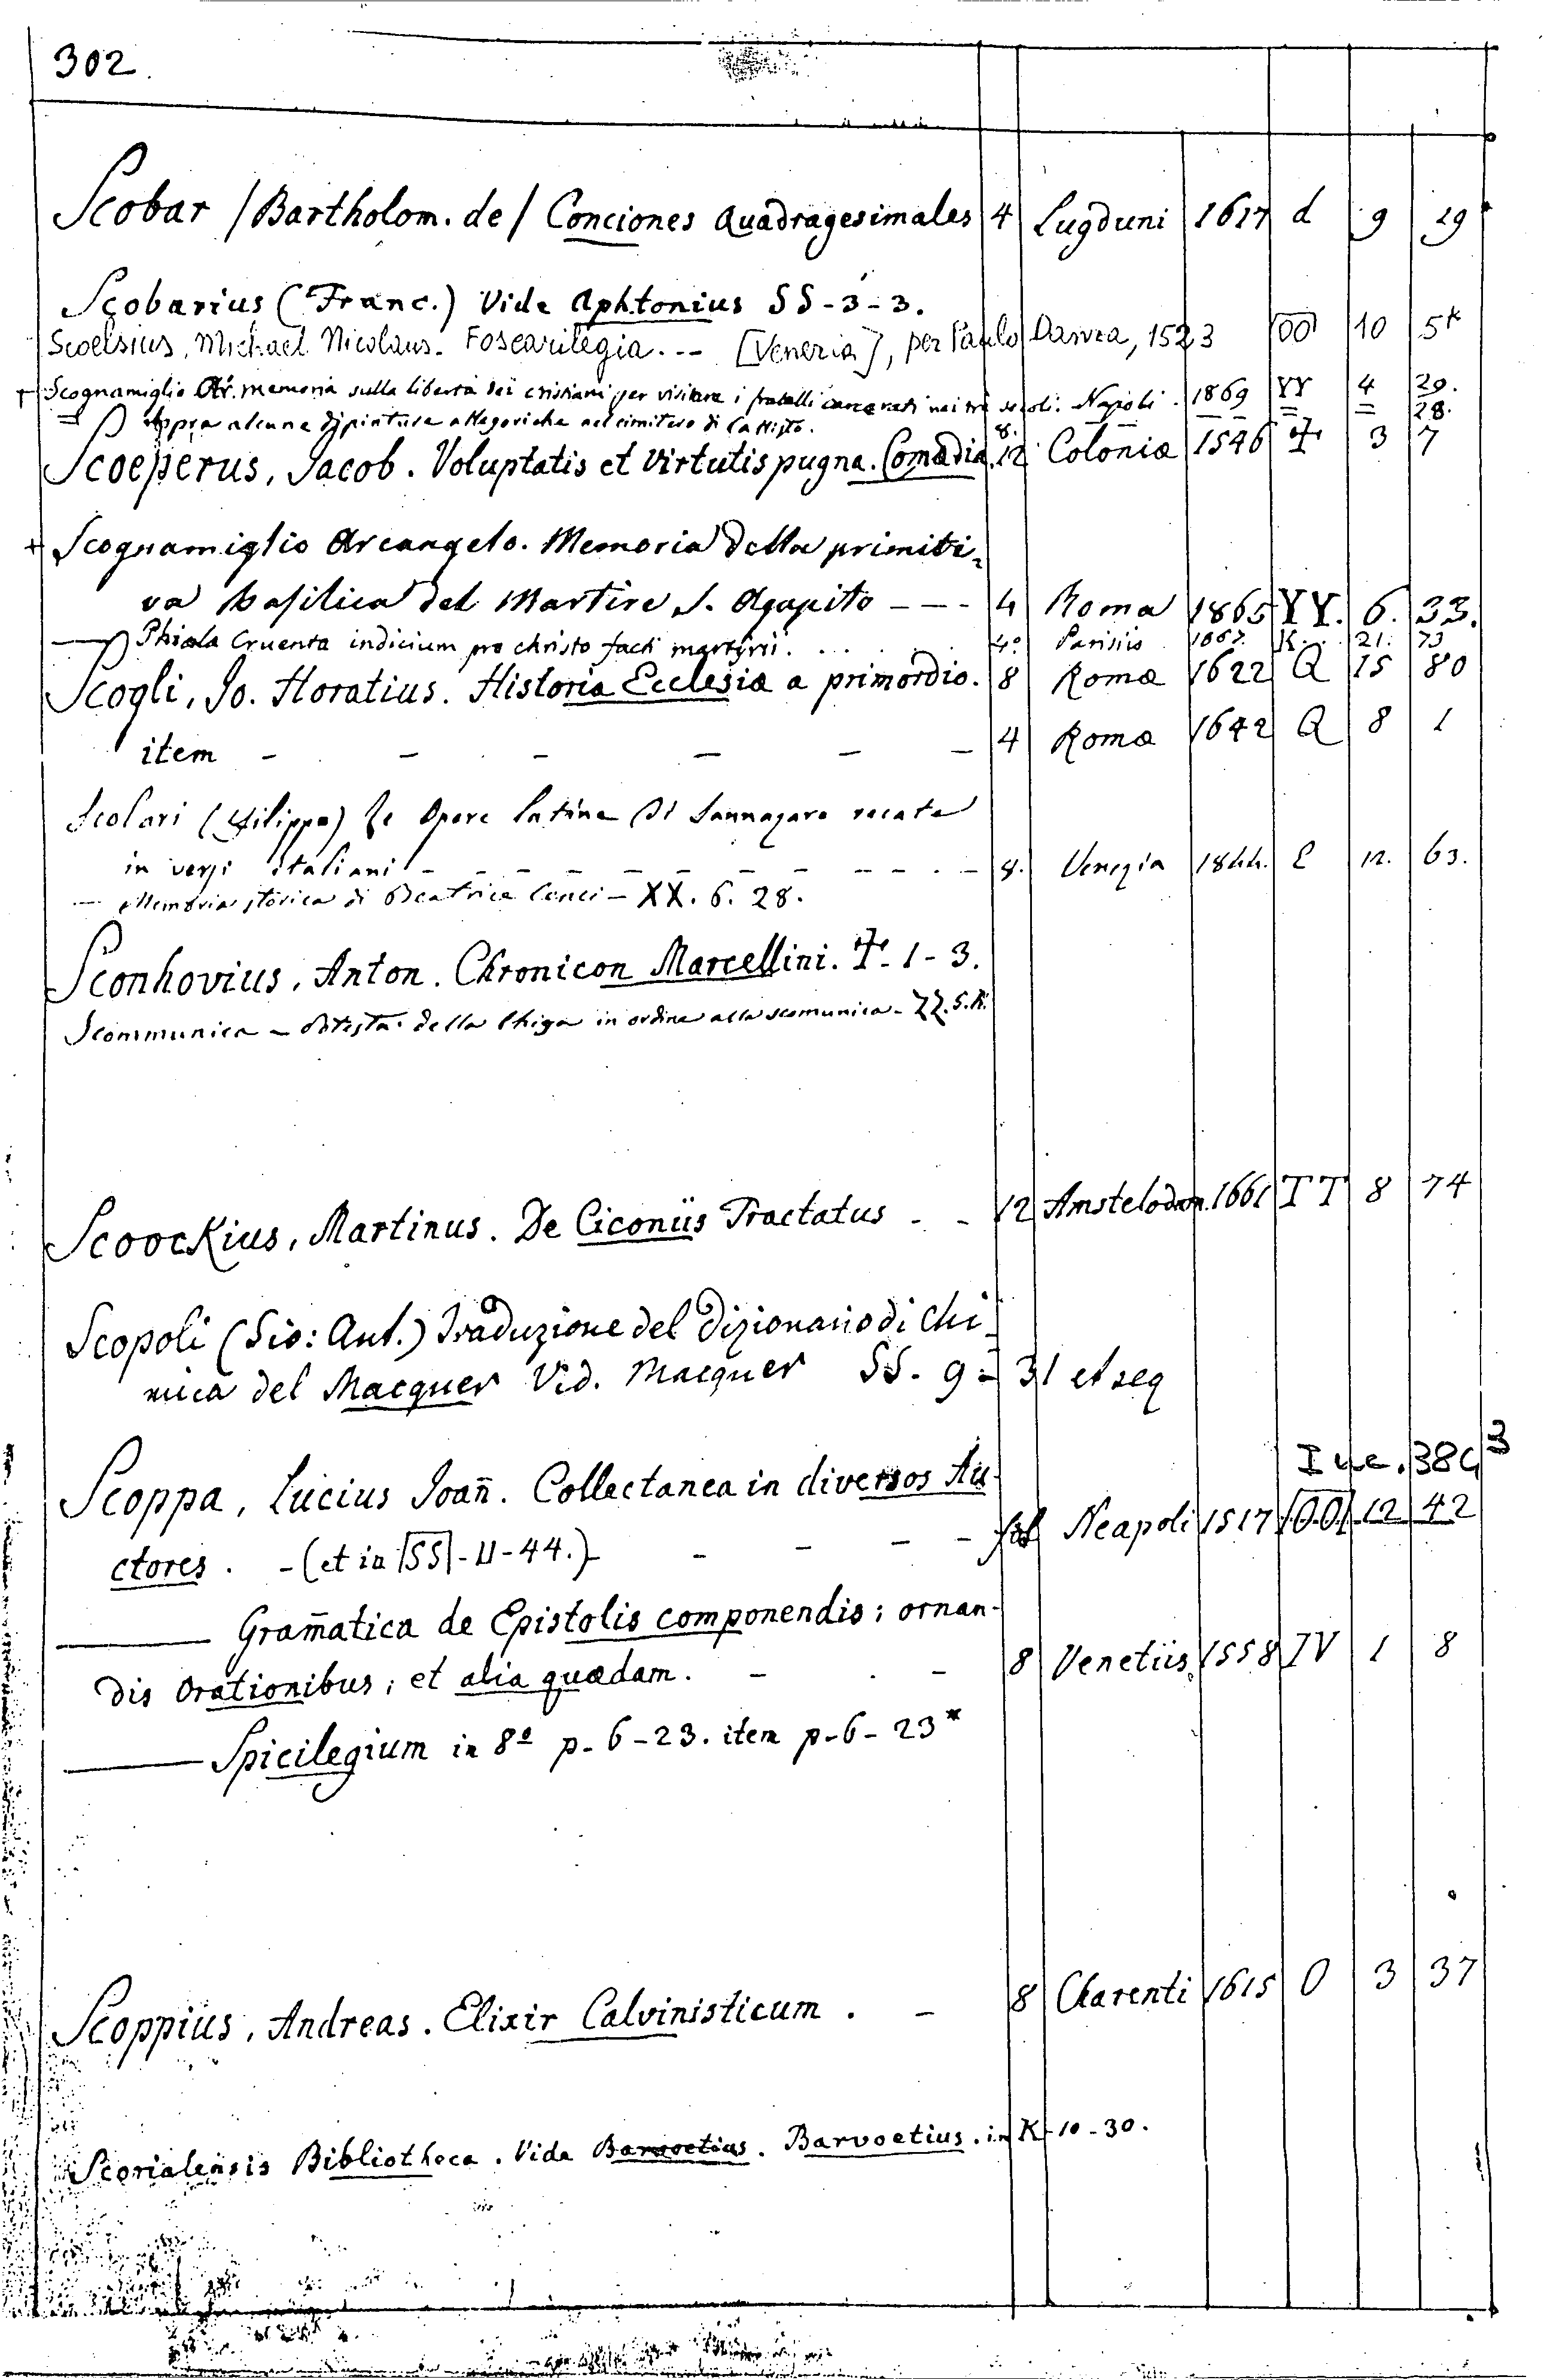 302.
Scobar /Bartholom. de/ Conciones Quadragesimales 4 Lugduni 1617 d 9 19
Scobarius (Franc.) Vide Aphtonius SS - 3 - 3.
Scoelsius, Michael Nicolaus. Foscarilegia... [Venezia], per Paulo Danza, 1523 OO 10 5*
+ Scognamiglio Ar. memoria sulla liberta dei cristiani per visitare i fratelli carcerati nei tre secoli. Napoli. 1869 YY 4 29.
= Sopra alcune dipinture allegoriche nel cimitero di Callisto. 8. = = 28.
Scoeperus, Jacob. Voluptatis et Virtutis pugna. Comœdia. 12 Coloniæ 1546 3 7
+ Scognamiglio Arcangelo. Memoria della primiti-
va basilica del Martire S. Agapito - - - 4 Roma 1865 YY. 6. 33.
— Phiala Cruenta indicium pro christo facti martyrii. . . . 4° Parisiis 1867. K. 21. 73
Scogli, Jo. Horatius. Historia Ecclesiæ a primordio. 8 Romæ 1622 Q 15 80
item - - - - - - 4 Romæ 1642 Q 8 1
Scolari (Filippo) Le Opere latine di Sannazaro recate
in versi italiani - - - - - - - - 8. Venezia 1844. E 12. 63.
— Memoria storica di Beatrice Cenci - XX. 6. 28.
Sconhovius, Anton. Chronicon Marcellini. - 1 - 3.
Scommunica - della Chiesa in ordine alla scomunica - ZZ. 5.
Scoockius, Martinus. De Ciconiis Tractatus - - 12 Amstelodam. 1661 TT 8 74
Scopoli (Gio: Ant.) Traduzione del Dizionario di Chi-
mica del Macquer Vid. Macquer SS. 9 - 31 et seq
Inc. 389 3
Scoppa, Lucius Joan̄. Collectanea in diversos Au-
ctores. - (et in SS - 11 - 44.) - - - - fol Neapoli 1517 OO 12 42
—— Gram̄atica de Epistolis componendis; ornan-
dis Orationibus; et alia quædam. - . - 8 Venetiis 1558 IV 1 8
—— Spicilegium in 8º p - 6 - 23. item p - 6 - 23*
Scoppius, Andreas. Elixir Calvinisticum . - 8 Charenti 1615 O 3 37
Scorialensis Bibliotheca. Vide Barvoetius. Barvoetius. in K - 10 - 30.